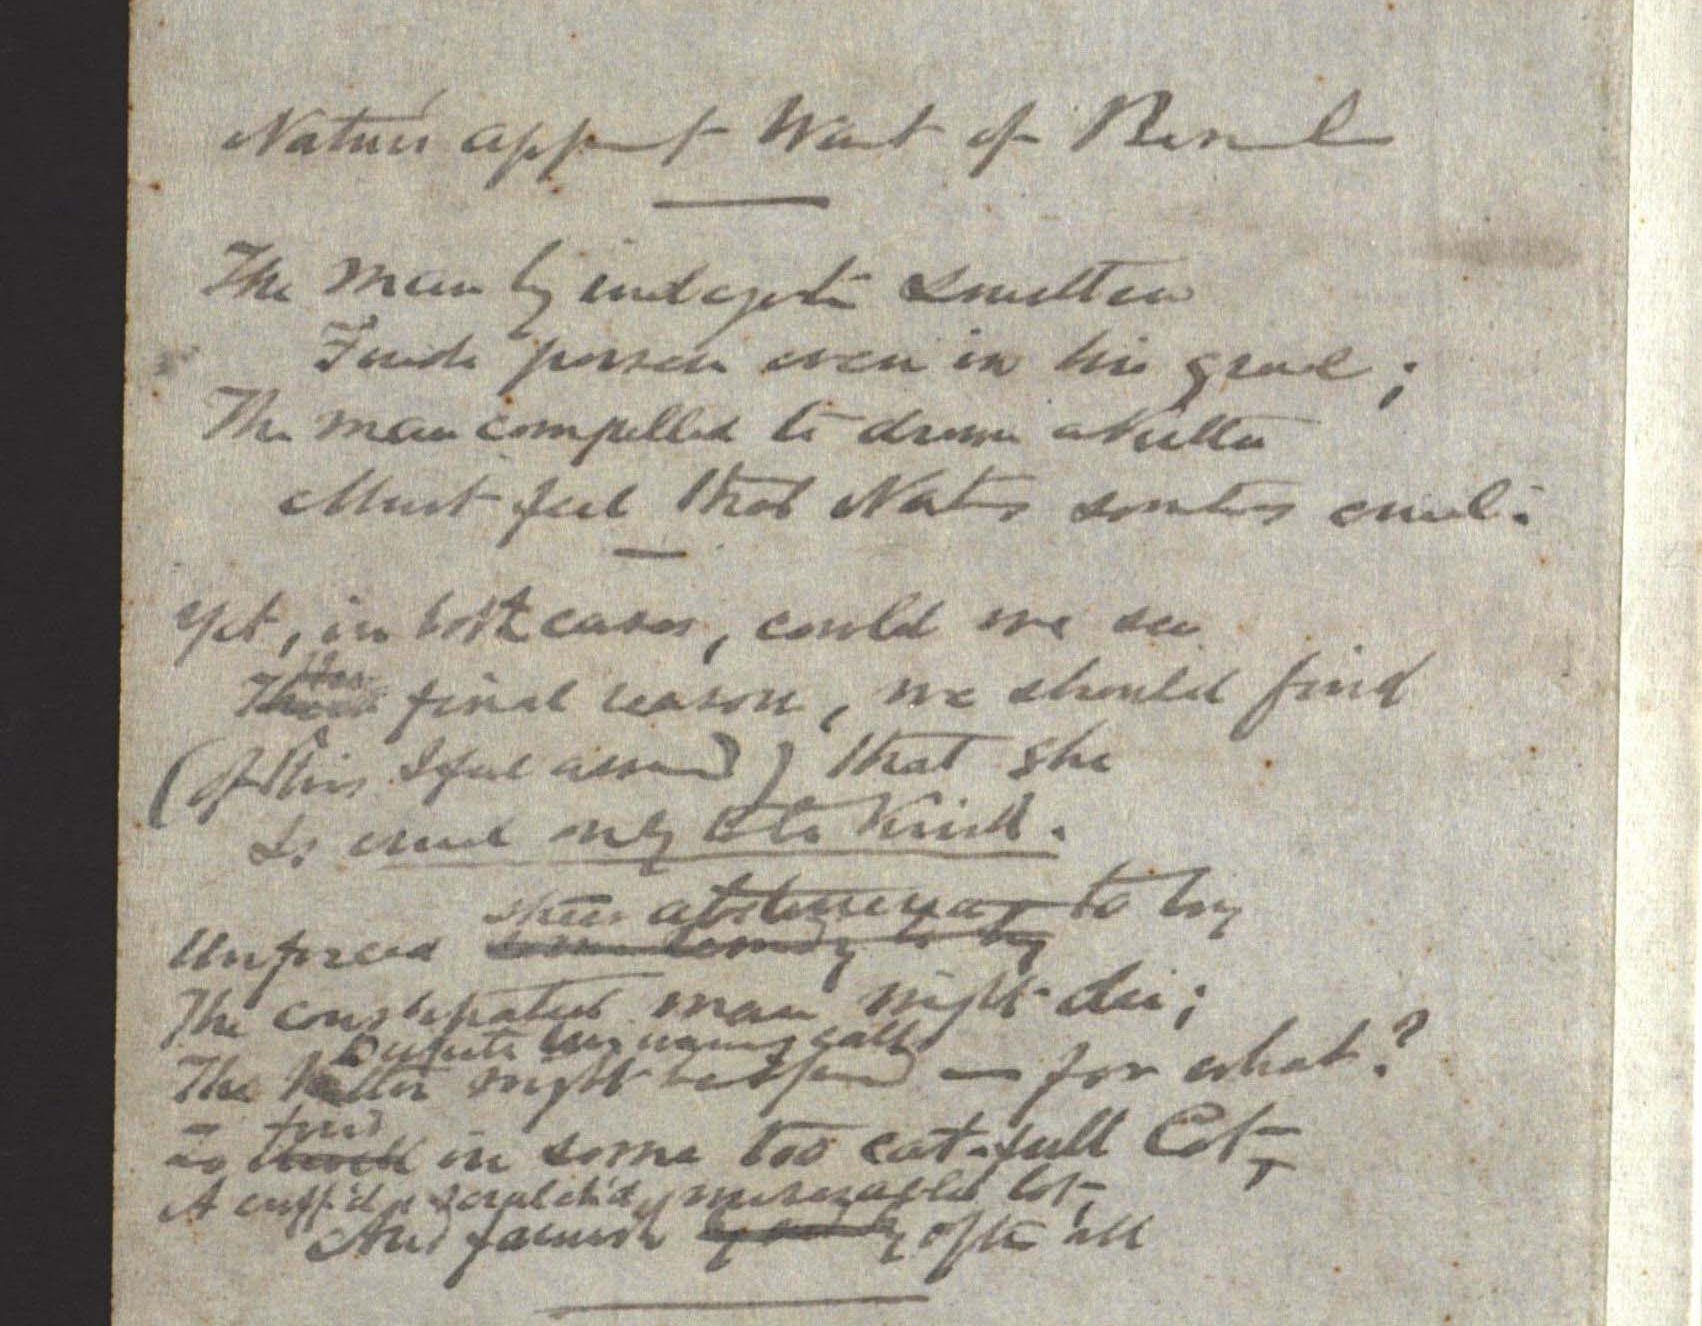 Nature's appt Want of
The man by indigestn Smitten
Finds poison even in his gruel;
The man compelled to drown a Kitten
Must feel that Nature somtims cruel:
Yet, in both cases, could we see
The final reason, we should find
(Of this I feel assured) that she
Is cruel only to be kind.
sheer abstinence to try
Unforced
The constipated man might die;
Despite
The Kitten might be spared — for what?
To find in some too cat-full Cot,
A cuff'd, scratch'd, miserable lot,
And famish after all